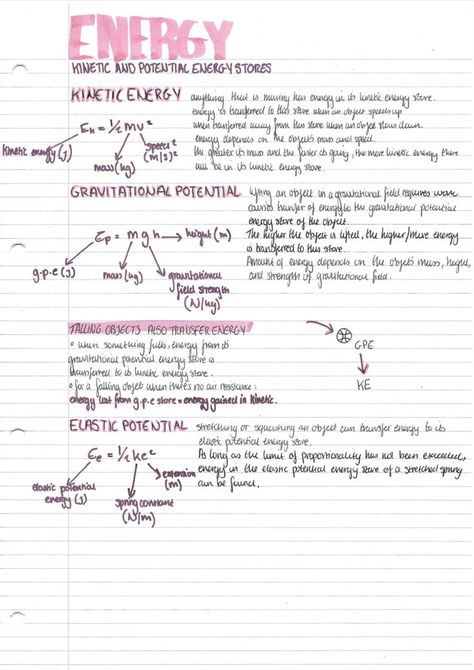 ENERGY
KINETIC AND POTENTIAL ENERGY STORES
KINETIC ENERGY
anything that is moving has energy in its kinetic energy store.
energy is transferred to this store when an object speeds up
when transferred away from this store when an object slows down.
energy depends on the objects mass and speed.
the greater its mass and the faster its going, the more kinetic energy there
will be in its kinetic energy store.
Ek = 1/2 mv²
kinetic energy (J)
mass (kg)
speed²
(m/s)²
GRAVITATIONAL POTENTIAL
lifting an object in a gravitational field requires work.
causes transfer of energy to the gravitational potential
energy store of the object.
The higher the object is lifted, the higher/more energy
is transferred to this store.
Amount of energy depends on the objects mass, height,
and strength of gravitational field.
Ep = mgh → height (m)
g.p.e (J)
mass (kg)
gravitational
field strength
(N/kg)
FALLING OBJECTS ALSO TRANSFER ENERGY
• when something falls, energy from its
gravitational potential energy store is
transferred to its kinetic energy store.
• for a falling object when there's no air resistance:
energy lost from g.p.e store = energy gained in kinetic.
GPE
KE
ELASTIC POTENTIAL
stretching or squashing an object can transfer energy to its
elastic potential energy store.
As long as the limit of proportionality has not been exceeded,
energy in the elastic potential energy store of a stretched spring
can be found.
Ee = 1/2 ke²
elastic potential
energy (J)
spring constant
(N/m)
extension
(m)